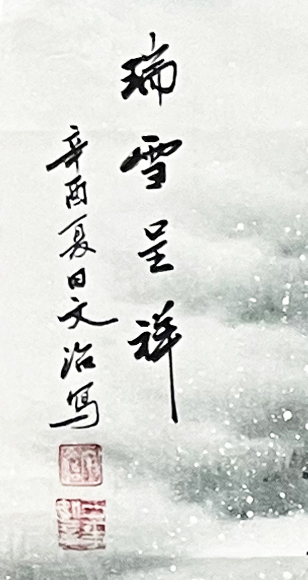 瑞雪呈祥
辛酉夏日文治寫